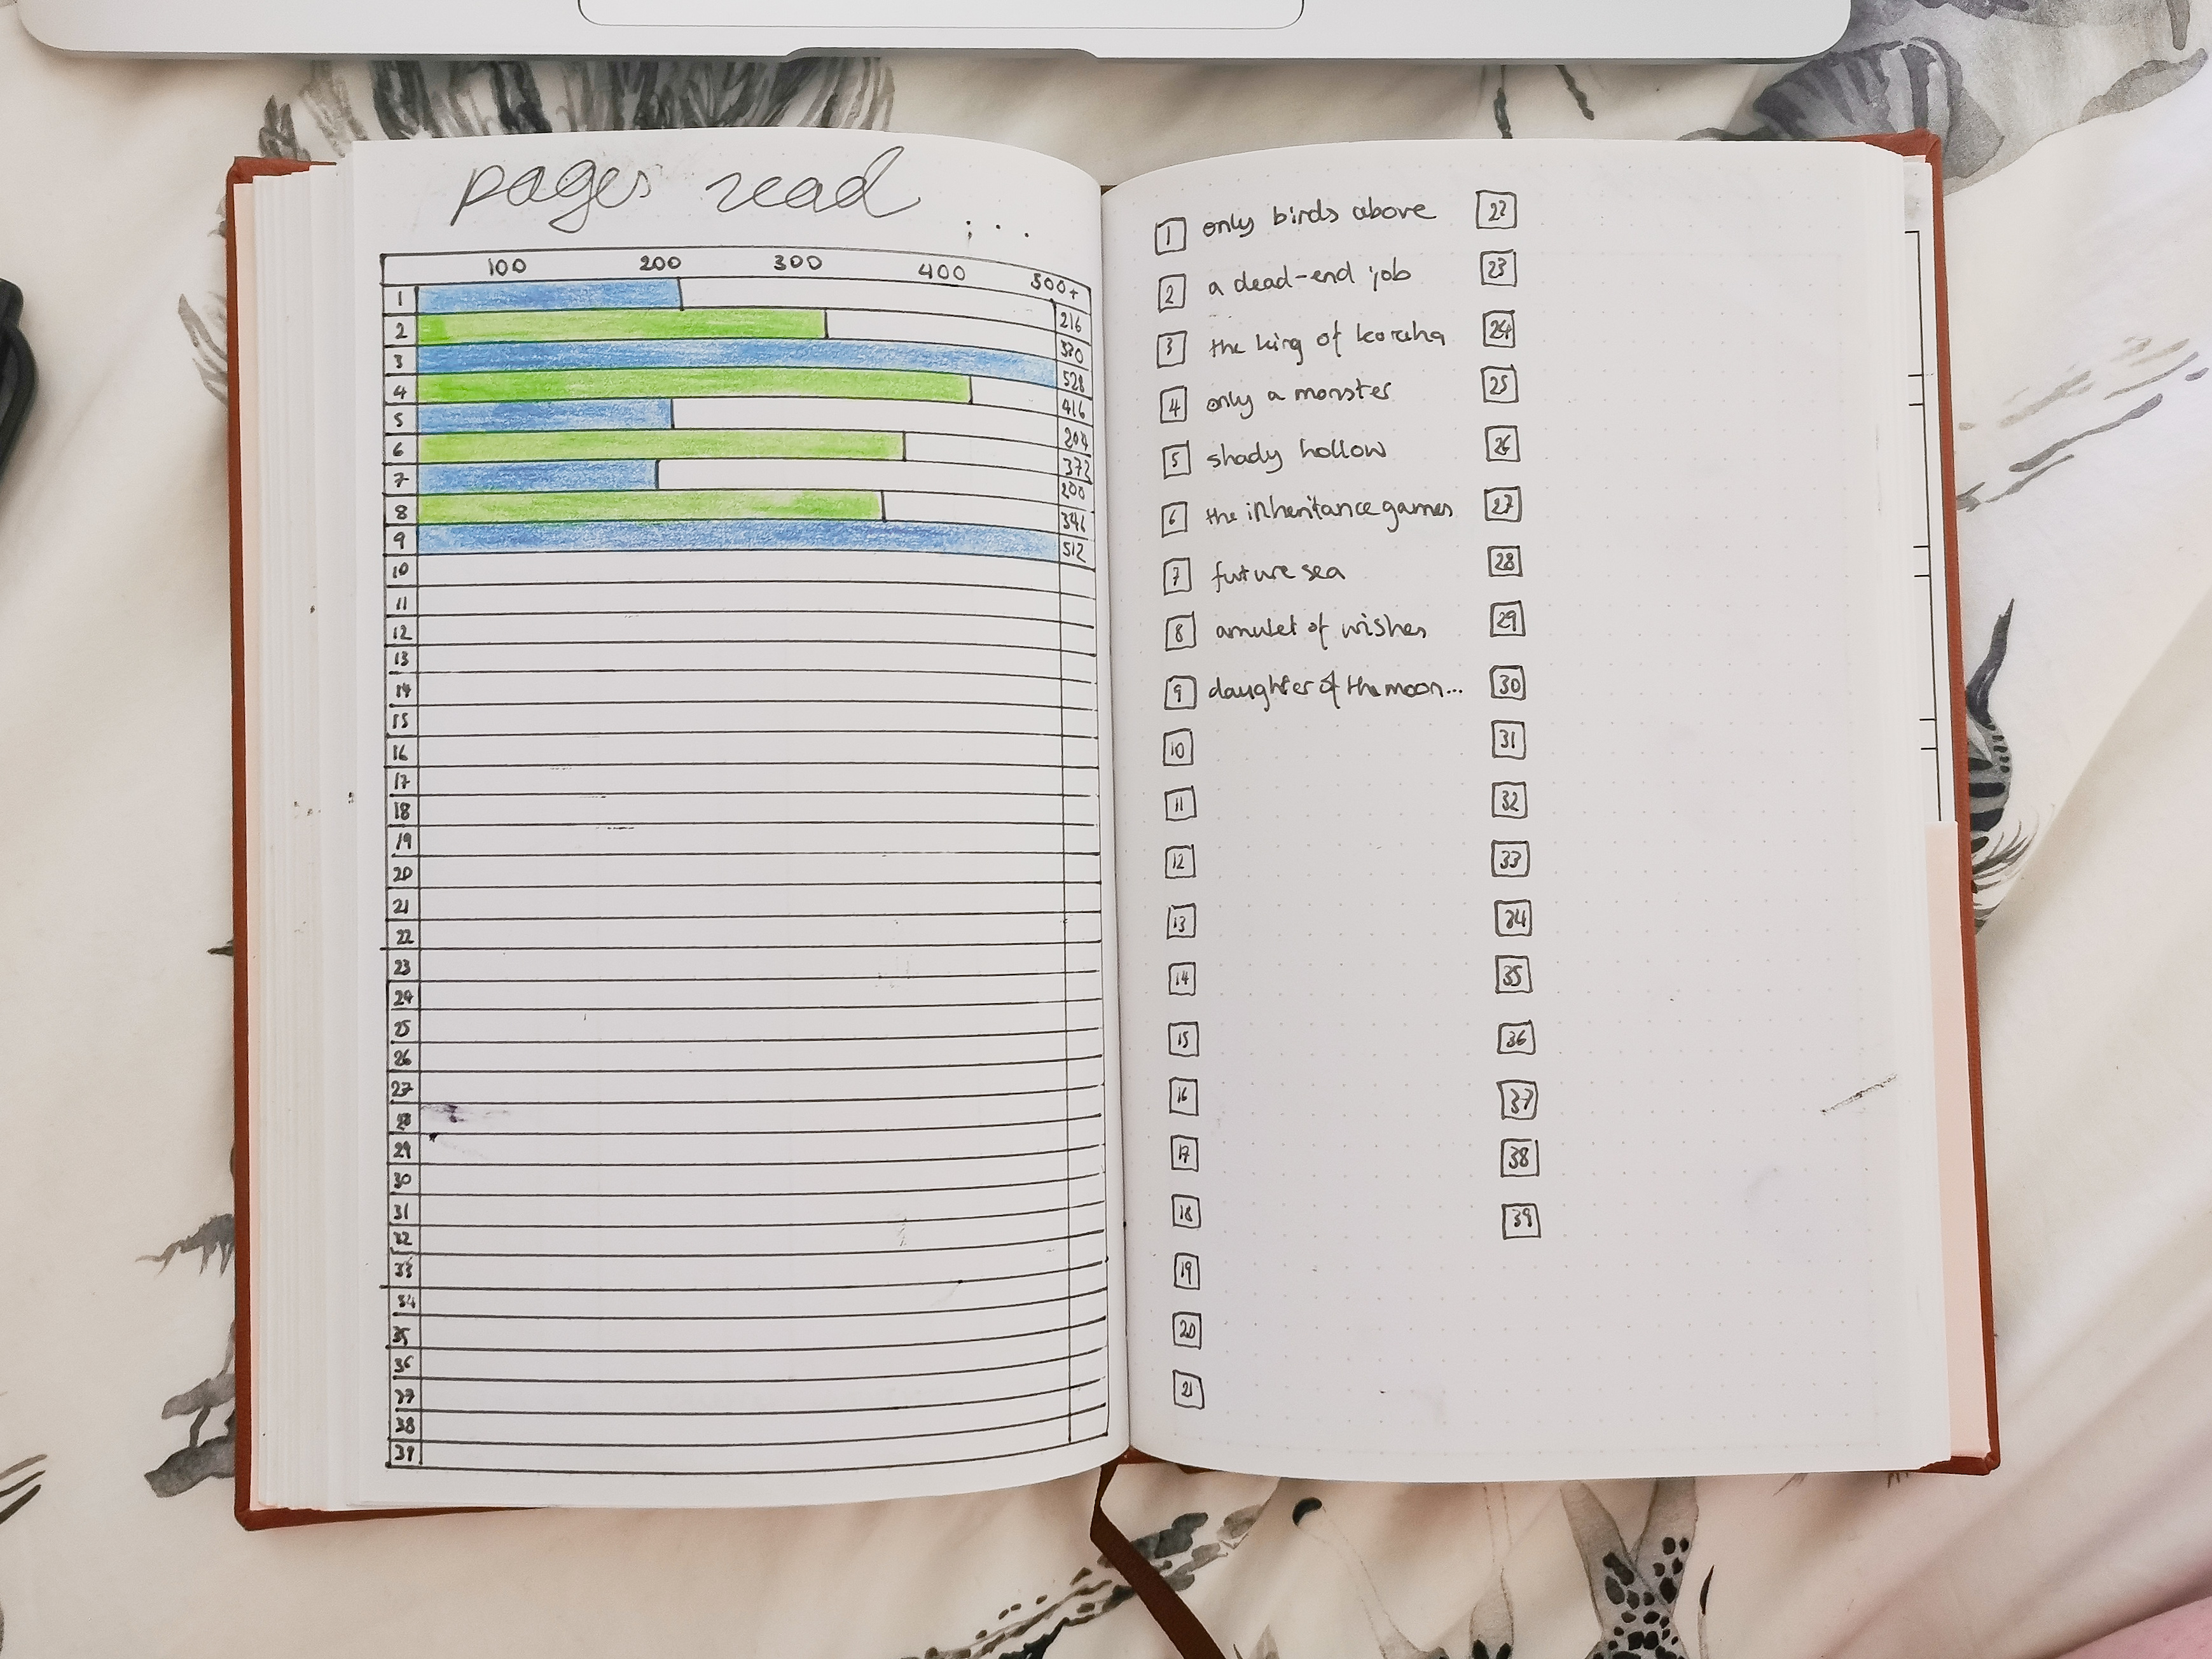 pages read ...
100 200 300 400 500+
1 216
2 320
3 528
4 416
5 204
6 372
7 200
8 346
9 512
10
11
12
13
14
15
16
17
18
19
20
21
22
23
24
25
26
27
28
29
30
31
32
33
34
35
36
37
38
39
1 only birds above
2 a dead-end job
3 the king of koraha
4 only a monster
5 shady hollow
6 the inheritance games
7 future sea
8 amulet of wishes
9 daughter of the moon...
10
11
12
13
14
15
16
17
18
19
20
21
22
23
24
25
26
27
28
29
30
31
32
33
34
35
36
37
38
39